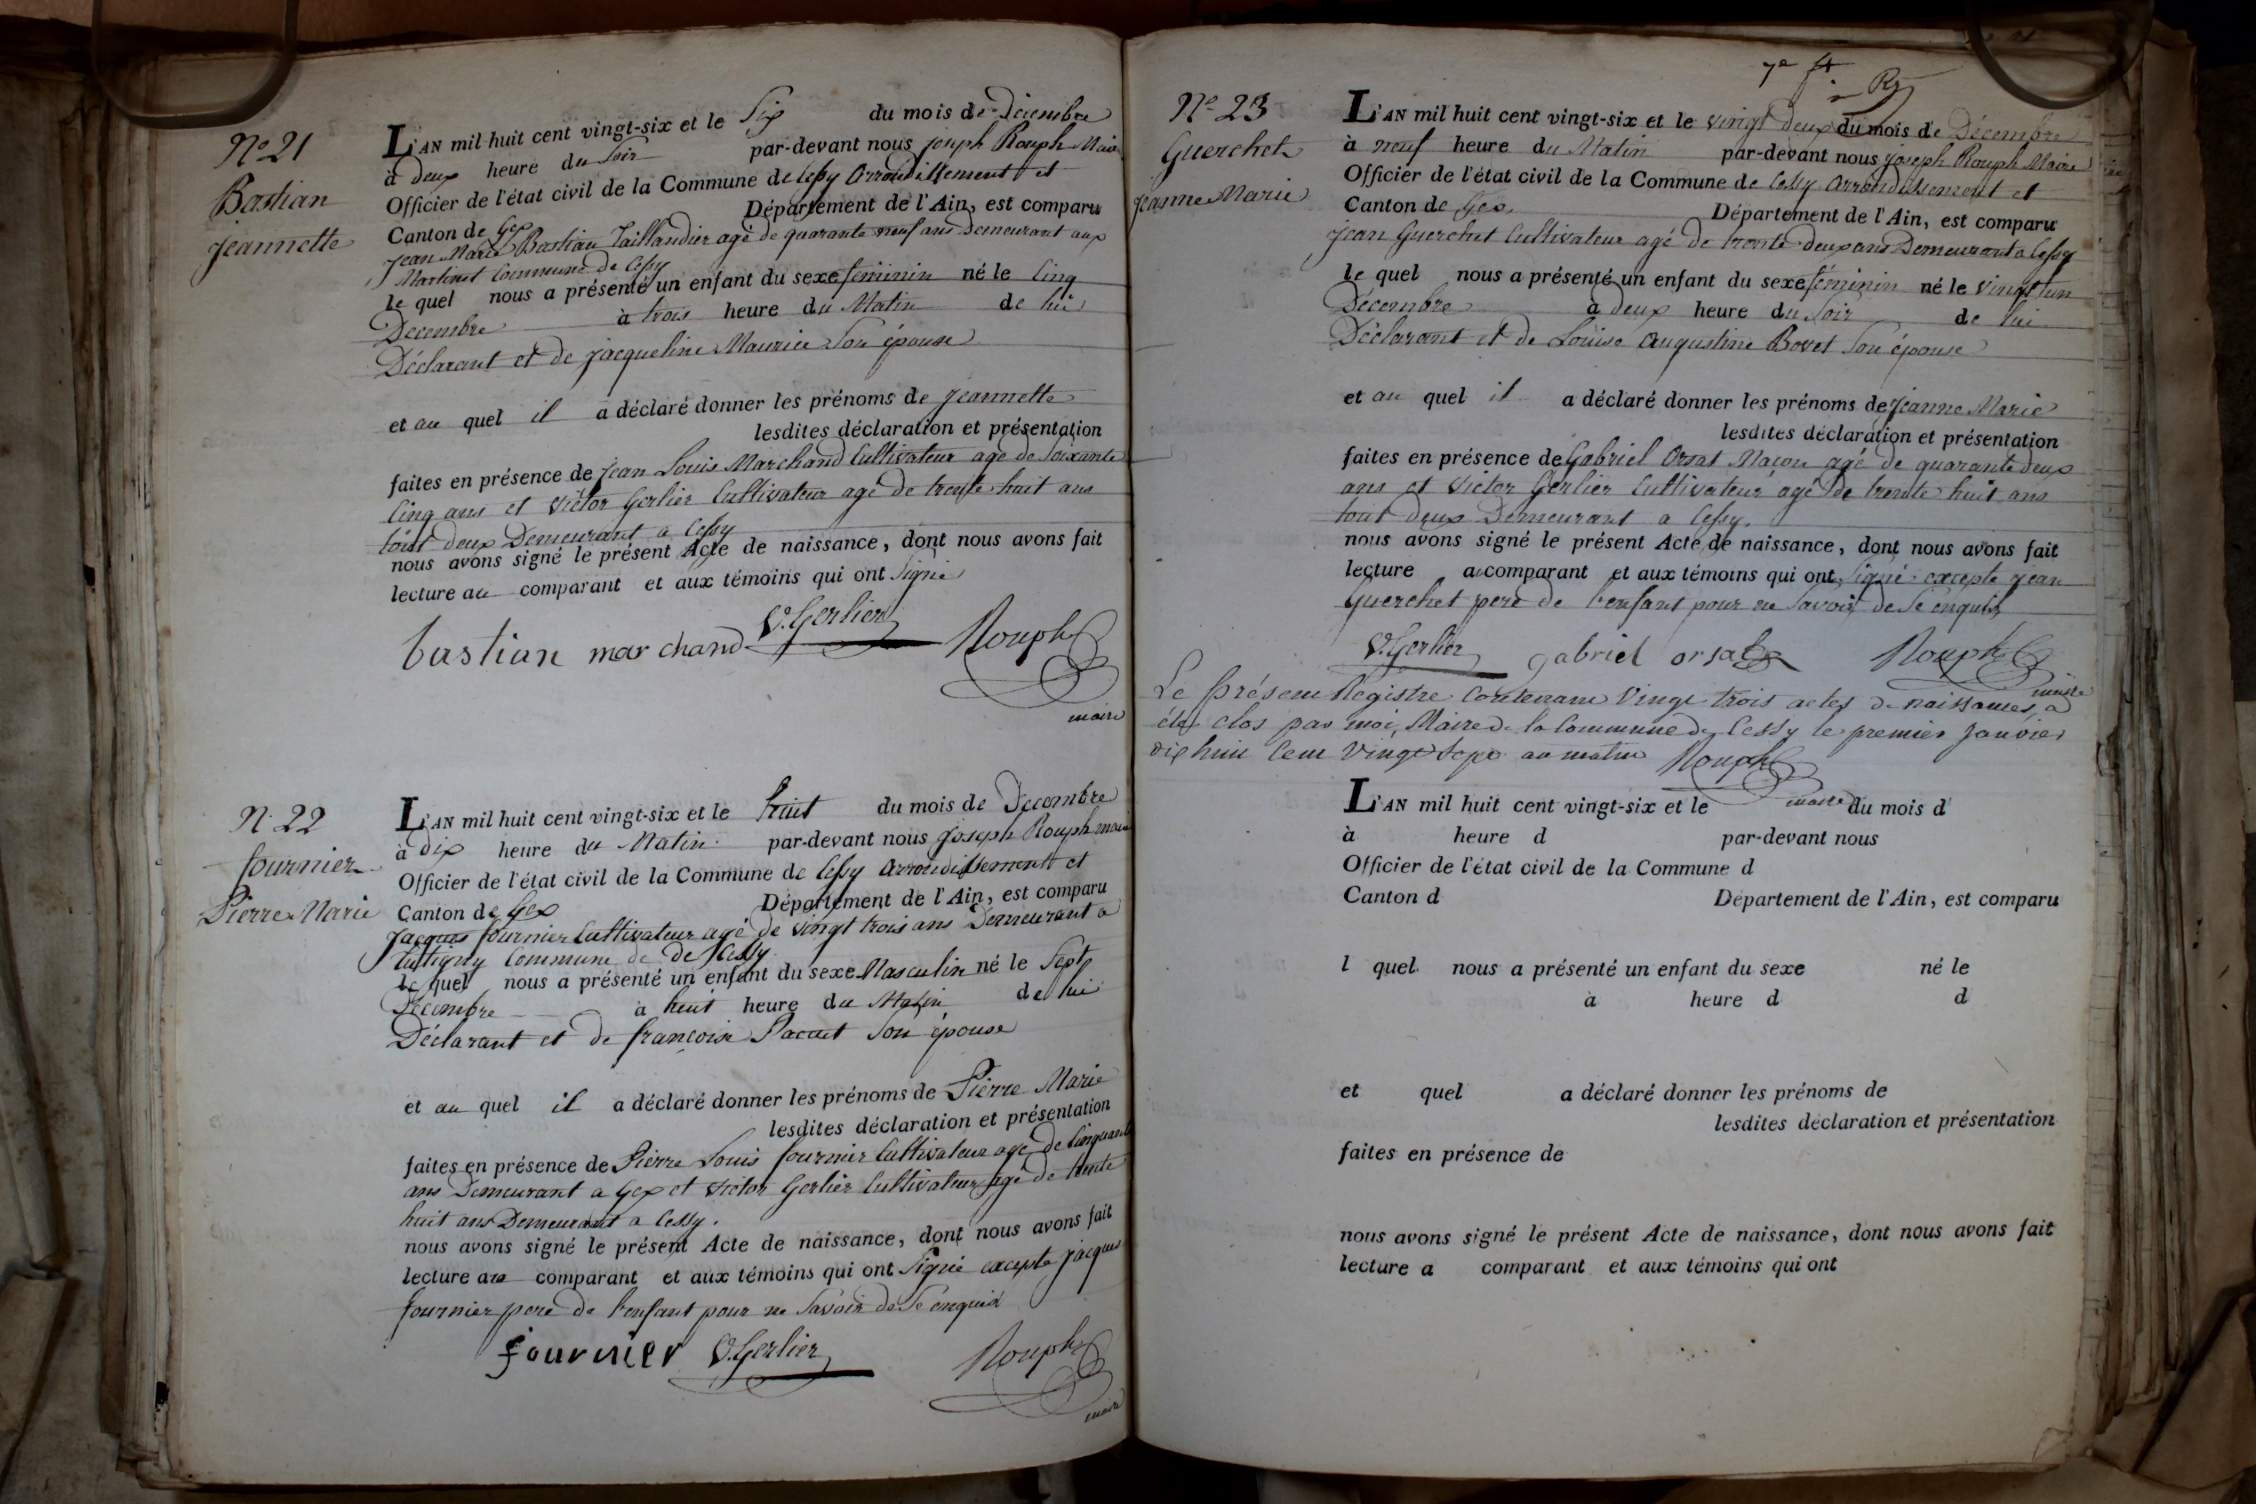 No 21
Bastian
Jeannette
L'AN mil huit cent vingt-six et le Six du mois de Décembre
à deux heure du Soir par-devant nous joseph Rouph Maire
Officier de l'état civil de la Commune de Cessy Arrondissement et
Canton de Gex Département de l'Ain, est comparu
Jean Marie Bastian Taillandier agé de quarante neuf ans Demeurant aux
Martinet Commune de Cessy
le quel nous a présenté un enfant du sexe feminin né le Cinq
Decembre à trois heure du Matin de lui
Déclarant et de jacqueline Maurice Son épouse
et au quel il a déclaré donner les prénoms de Jeannette
lesdites déclaration et présentation
faites en présence de Jean Louis Marchand Cultivateur agé de Soixante
Cinq ans et Victor Gerlier Cultivateur agé de trente huit ans
tout deux Demeurant a Cessy
nous avons signé le présent Acte de naissance, dont nous avons fait
lecture au comparant et aux témoins qui ont Signé
bastian marchand V. Gerlier Rouph
maire
N. 22
fournier
Pierre Marie
L'AN mil huit cent vingt-six et le huit du mois de Decembre
à dix heure du Matin par-devant nous Joseph Rouph maire
Officier de l'état civil de la Commune de Cessy Arrondissement et
Canton de Gex Département de l'Ain, est comparu
Jacques fournier Cultivateur agé de vingt trois ans Demeurant a
Commune de de Cessy
le quel nous a présenté un enfant du sexe Masculin né le Sept
Décembre à huit heure du Matin de lui
Déclarant et de françoise Son épouse
et au quel il a déclaré donner les prénoms de Pierre Marie
lesdites déclaration et présentation
faites en présence de Pierre Louis fournier Cultivateur agé de Cinquante
ans Demeurant a Gex et Victor Gerlier Cultivateur agé de trente
huit ans Demeurant a Cessy.
nous avons signé le présent Acte de naissance, dont nous avons fait
lecture au comparant et aux témoins qui ont Signé excepte Jacques
fournier pere de l'enfant pour ne Savoir de Ce enquis
fournier V. Gerlier Rouph
maire
7e
No 23
Guerchet
Jeanne Marie
L'AN mil huit cent vingt-six et le vingt deux du mois de Décembre
à neuf heure du Matin par-devant nous joseph Rouph Maire
Officier de l'état civil de la Commune de Cessy Arrondissement et
Canton de Gex Département de l'Ain, est comparu
Jean Guerchet Cultivateur agé de trente deux ans Demeurant a Cessy
le quel nous a présenté un enfant du sexe feminin né le vingt un
Décembre à deux heure du Soir de lui
Déclarant et de Louise Augustine Bovet Son épouse
et au quel il a déclaré donner les prénoms de Jeanne Marie
lesdites déclaration et présentation
faites en présence de Gabriel Orsat Maçon agé de quarante deux
ans et Victor Gerlier Cultivateur agé de trente huit ans
tout deux Demeurant a Cessy.
nous avons signé le présent Acte de naissance, dont nous avons fait
lecture a comparant et aux témoins qui ont Signé excepte Jean
Guerchet pere de l'enfant pour ne Savoir de Ce enquis
V. Gerlier gabriel orsat Rouph
maire
Le présent Registre Contenant Vingt trois actes de naissances, a
été clos par moi, Maire de la Commune de Cessy le premier Janvier
dix huit Cent Vingt Sept au matin Rouph
maire
L'AN mil huit cent vingt-six et le du mois d
à heure d par-devant nous
Officier de l'état civil de la Commune d
Canton d Département de l'Ain, est comparu
l quel nous a présenté un enfant du sexe né le
à heure d d
et quel a déclaré donner les prénoms de
lesdites déclaration et présentation
faites en présence de
nous avons signé le présent Acte de naissance, dont nous avons fait
lecture a comparant et aux témoins qui ont